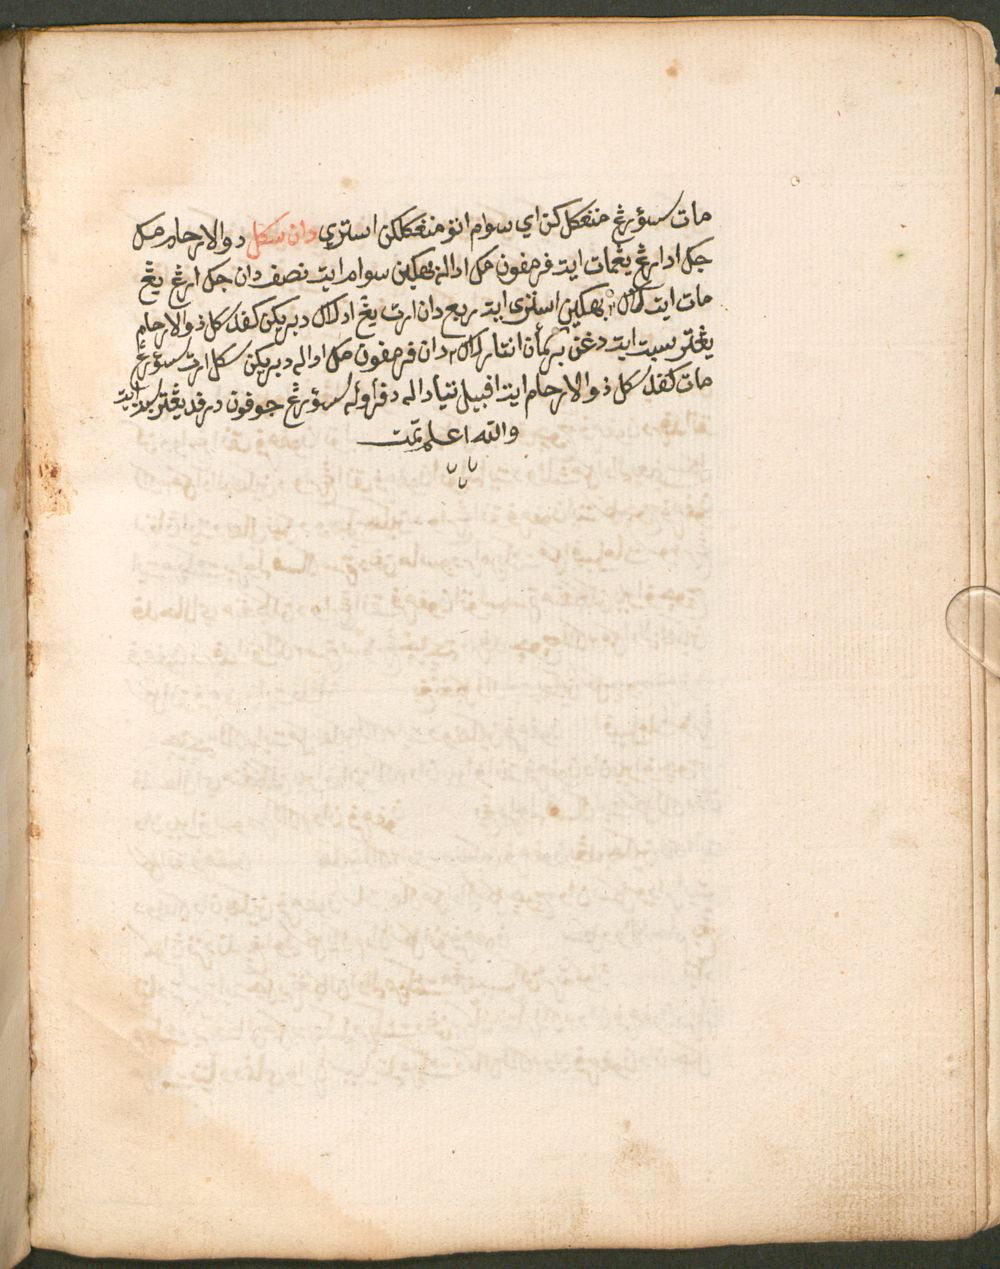 مات سؤرڠ منڠݢلكن اي سوام اتو منڠݢلكن استري دان سݢل ذوالارحام مك
جك ادا ارڠ يڠمات ايت فرمفون مك اداله بهݢين سوام ايت نصف دان جك ارڠ يڠ
مات ايت لاكي٢ بهݢين استري ايت ربع دان ارت يڠ اد لاݢ دبريكن كفد سݢل ذوالارحام
يڠترسبت ايت دڠن انتار لاكي٢ دان فرمفون مك اداله دبريكن سݢل ارت سؤرڠ
مات كفد سݢل ذوالارحام ايت افبيل تياد اله سؤرڠ جوفون درفد يڠترسبت ايت
والله اعلم تمت